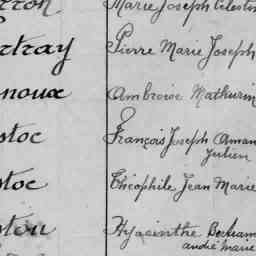 Marie Joseph Célestin
Pierre Marie Joseph
Ambroise Mathurin
stoc François Joseph Aman
Julien
stoc Théophile Jean Marie
Hyacinthe Bertram
andré Marie